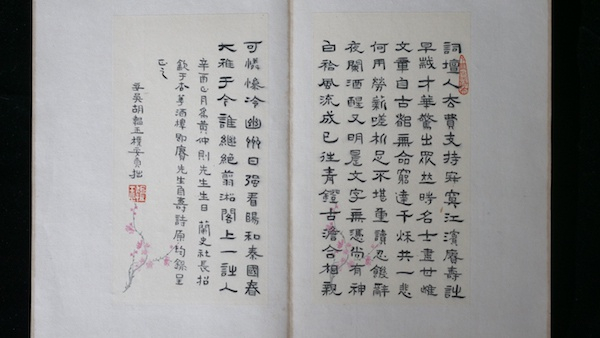 詞壇人去費支持寂寞江濱賡壽詩
早歲才華驚出眾時名士盡
文章自古都無命窮達千秋共一悲
何用勞薪嗟析足不堪重讀忍饑辭
夜闌酒醒又明星文字無憑尚有神
白袷風流成已往青鐙古澹合相親
可憐懷冷幽日強看陽和秦國春
大雅于今誰繼絕翦淞閣上一詩人
辛酉正月為黃仲則先生生日蘭史社長招
飲于杏酒樓即賡先生自壽詩原均錄呈
正之
安吳胡韞玉樸安貢拙